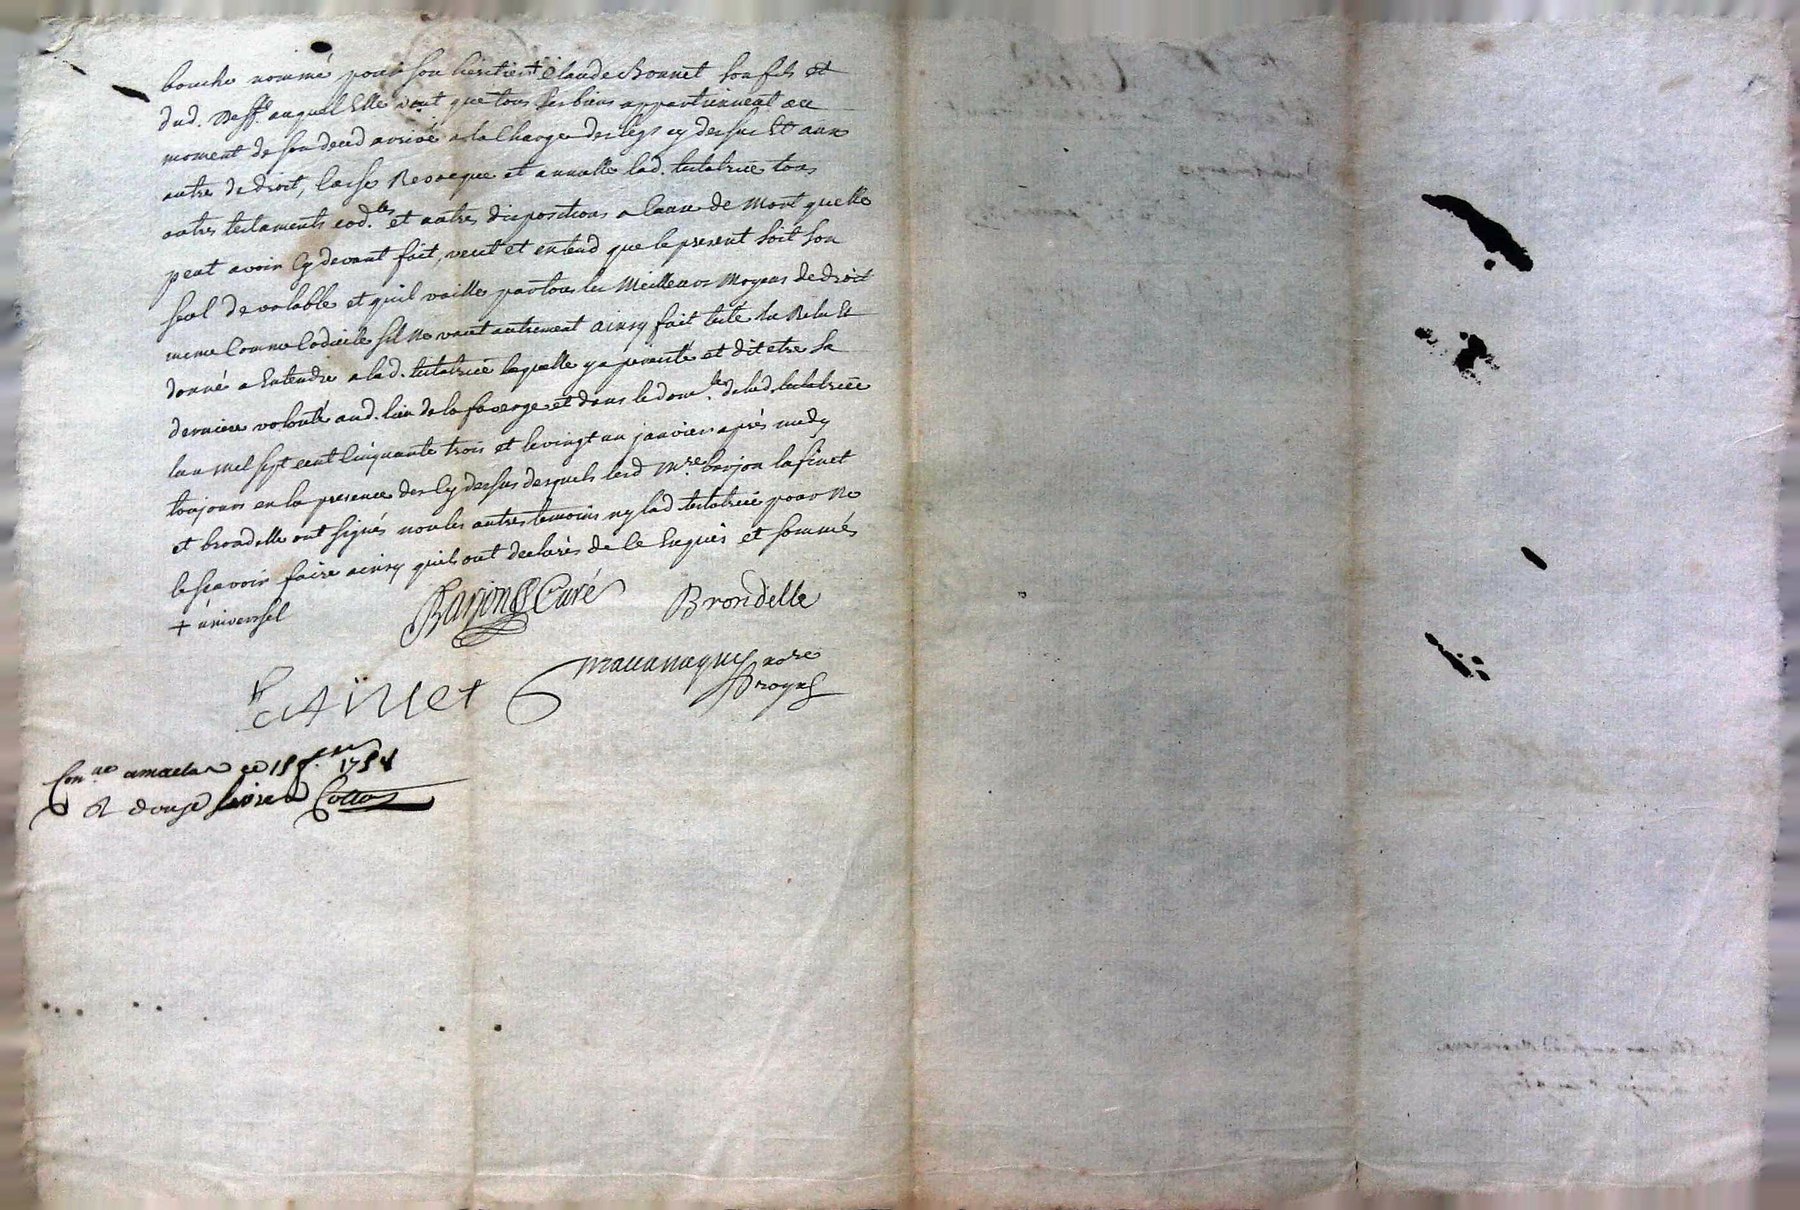 bouche nommé pour son héritier + Claude Bonnet son fils et
dud. deff. auquel Elle veut que tous ses biens appartiennent au
moment de son deced arrivé a la Charge des legs cy dessus Et aux
autre de droit, Casse Revoque et annulle lad. testatrice tous
autres testaments cod.les et autres dispositions a Cause de Mort quelle
peut avoir Cy devant fait, veut et entend que le present soit son
seul de valable et quil vaille par tous les Meilleurs Moyens de droit
meme Comme Codicile sil Ne vaut autrement ainsy fait testé lu Relu Et
donné a Entendre a lad. testatrice laquelle y a persisté et dit etre sa
derniere volonté aud. lieu de la faverge et dans le dom.le de lad. testatrice
lan Mil sept cent Cinquante trois et le vingt un janvier après midy
toujours en la presence des Cy dessus desquels lesd. Mre barjon
et brondelle ont signés non les autres temoins ny lad. testatrice pour Ne
le scavoir faire ainsy quils ont declarés de Ce Enquis et sommés
+ universel
Barjon Curé Brondelle
nore
royal
Con.lé ce 1754
douze livres